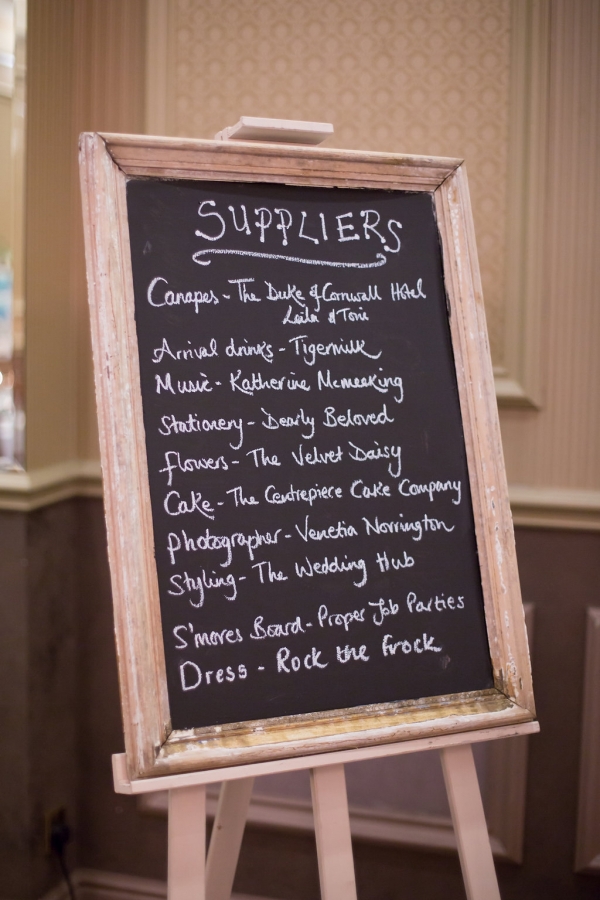 SUPPLIERS
Canapes - The Duke of Cornwall Hotel
Leila & Tone
Arrival drinks - Tigermilk
Music - Katherine Mcmeeking
Stationery - Dearly Beloved
Flowers - The Velvet Daisy
Cake - The Centrepiece Cake Company
Photographer - Venetia Norrington
Styling - The Wedding Hub
S'mores Board - Proper Job Parties
Dress - Rock the Frock